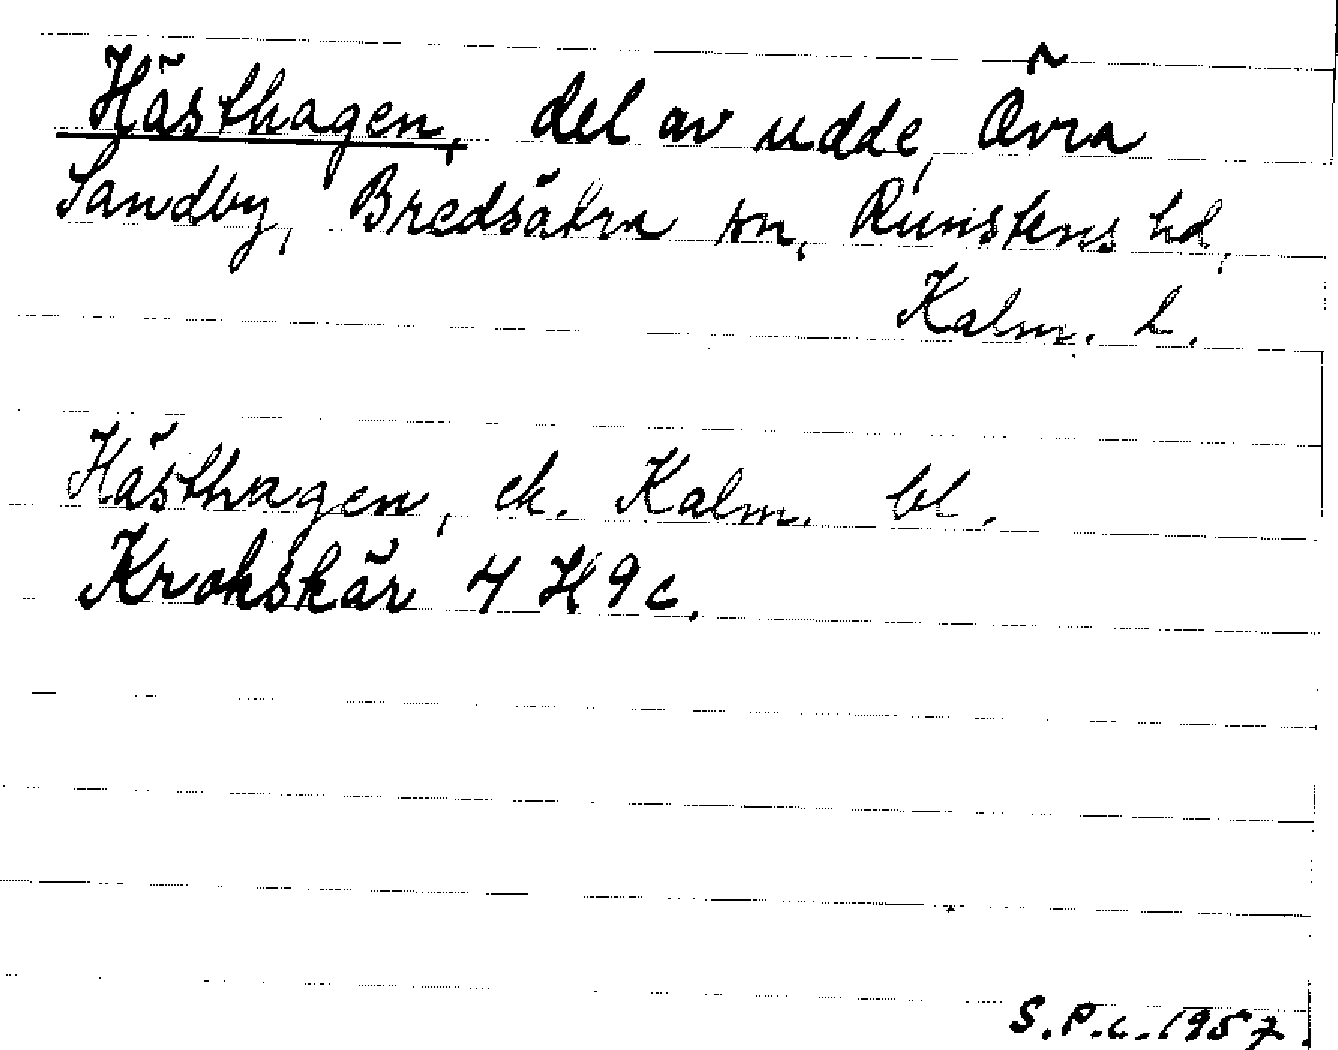 Hästhagen, del av udde, Övra
Sandby, Bredsätra sn, Runstens hd,
Kalm. l.
Hästhagen, ek. Kalm. bl.
Krokskär 4 H 9 c.
S.P.L. 1957.